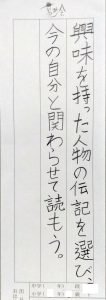 興味を持った人物の伝記を選び、
今の自分と関わらせて読もう。